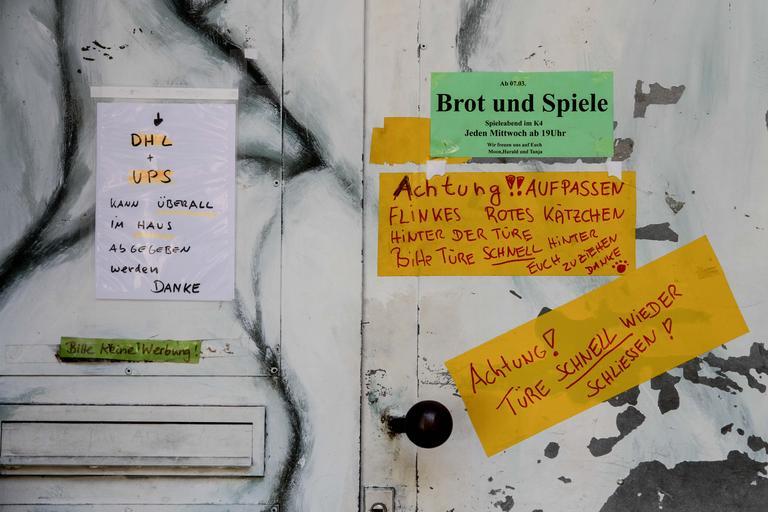 DHL
+
UPS
KANN ÜBERALL
IM HAUS
ABGEGEBEN
werden
DANKE
Bitte keine Werbung!
Ab 07.03.
Brot und Spiele
Spieleabend im K4
Jeden Mittwoch ab 19Uhr
Wir freuen uns auf Euch
Moon,Harald und Tanja
Achtung!! AUFPASSEN
FLINKES ROTES KÄTZCHEN
HINTER DER TÜRE
Bitte TÜRE SCHNELL HINTER
EUCH ZUZIEHEN
DANKE
Achtung!
TÜRE SCHNELL WIEDER
SCHLIESSEN!